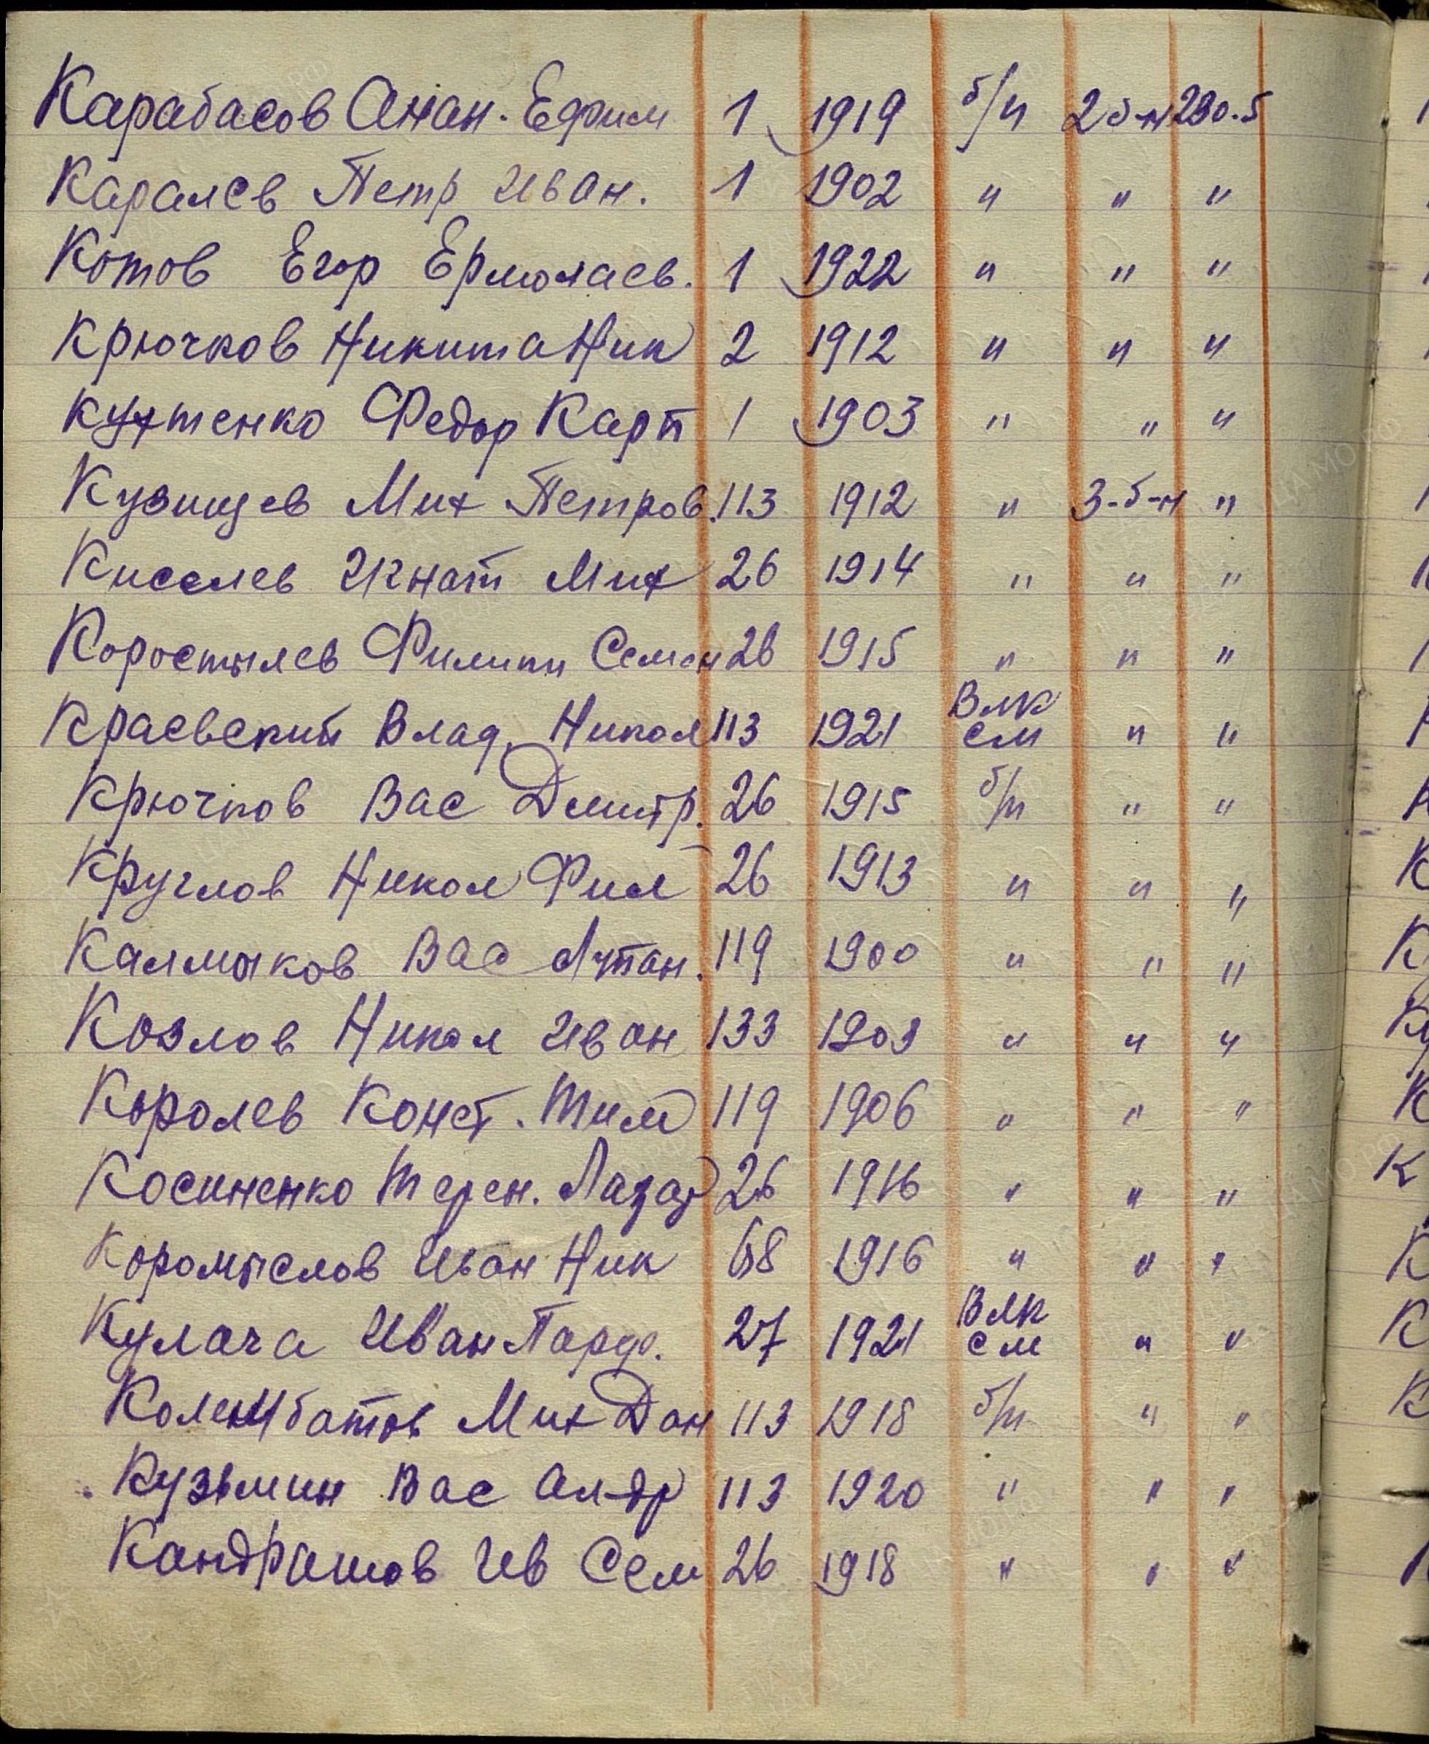 Карабасов Анан. Ефим 1 1919 б/п 2 б-н 230.5
Каралев Петр Иван. 1 1902 " " "
Котов Егор Ермолаев. 1 1922 " " "
Крючков Никита Ник 2 1912 " " "
Кухтенко Федор Карп 1 1903 " " "
Кузнецев Мих Петров. 113 1912 " 3-б-н "
Киселев Игнат Мих 26 1914 " " "
Коростылев Филипп Семен 28 1915 " " "
Краевский Влад. Никол 113 1921 Влксм " "
Крючков Вас Дмитр. 26 1915 б/п " "
Круглов Никол Фил 26 1913 " " "
Калмыков Вас Антан. 119 1900 " " "
Козлов Никол Иван 133 1903 " " "
Королев Конст. Тим 119 1906 " " "
Косиненко Терен. Лазар 26 1916 " " "
Коромыслов Иван Ник 68 1916 " " "
Кулача Иван Парф. 27 1921 Влксм " "
Мих Дан 113 1918 б/п " "
Кузьмин Вас Ал-др 113 1920 " " "
Кандрашов Ив Сем 26 1918 " " "